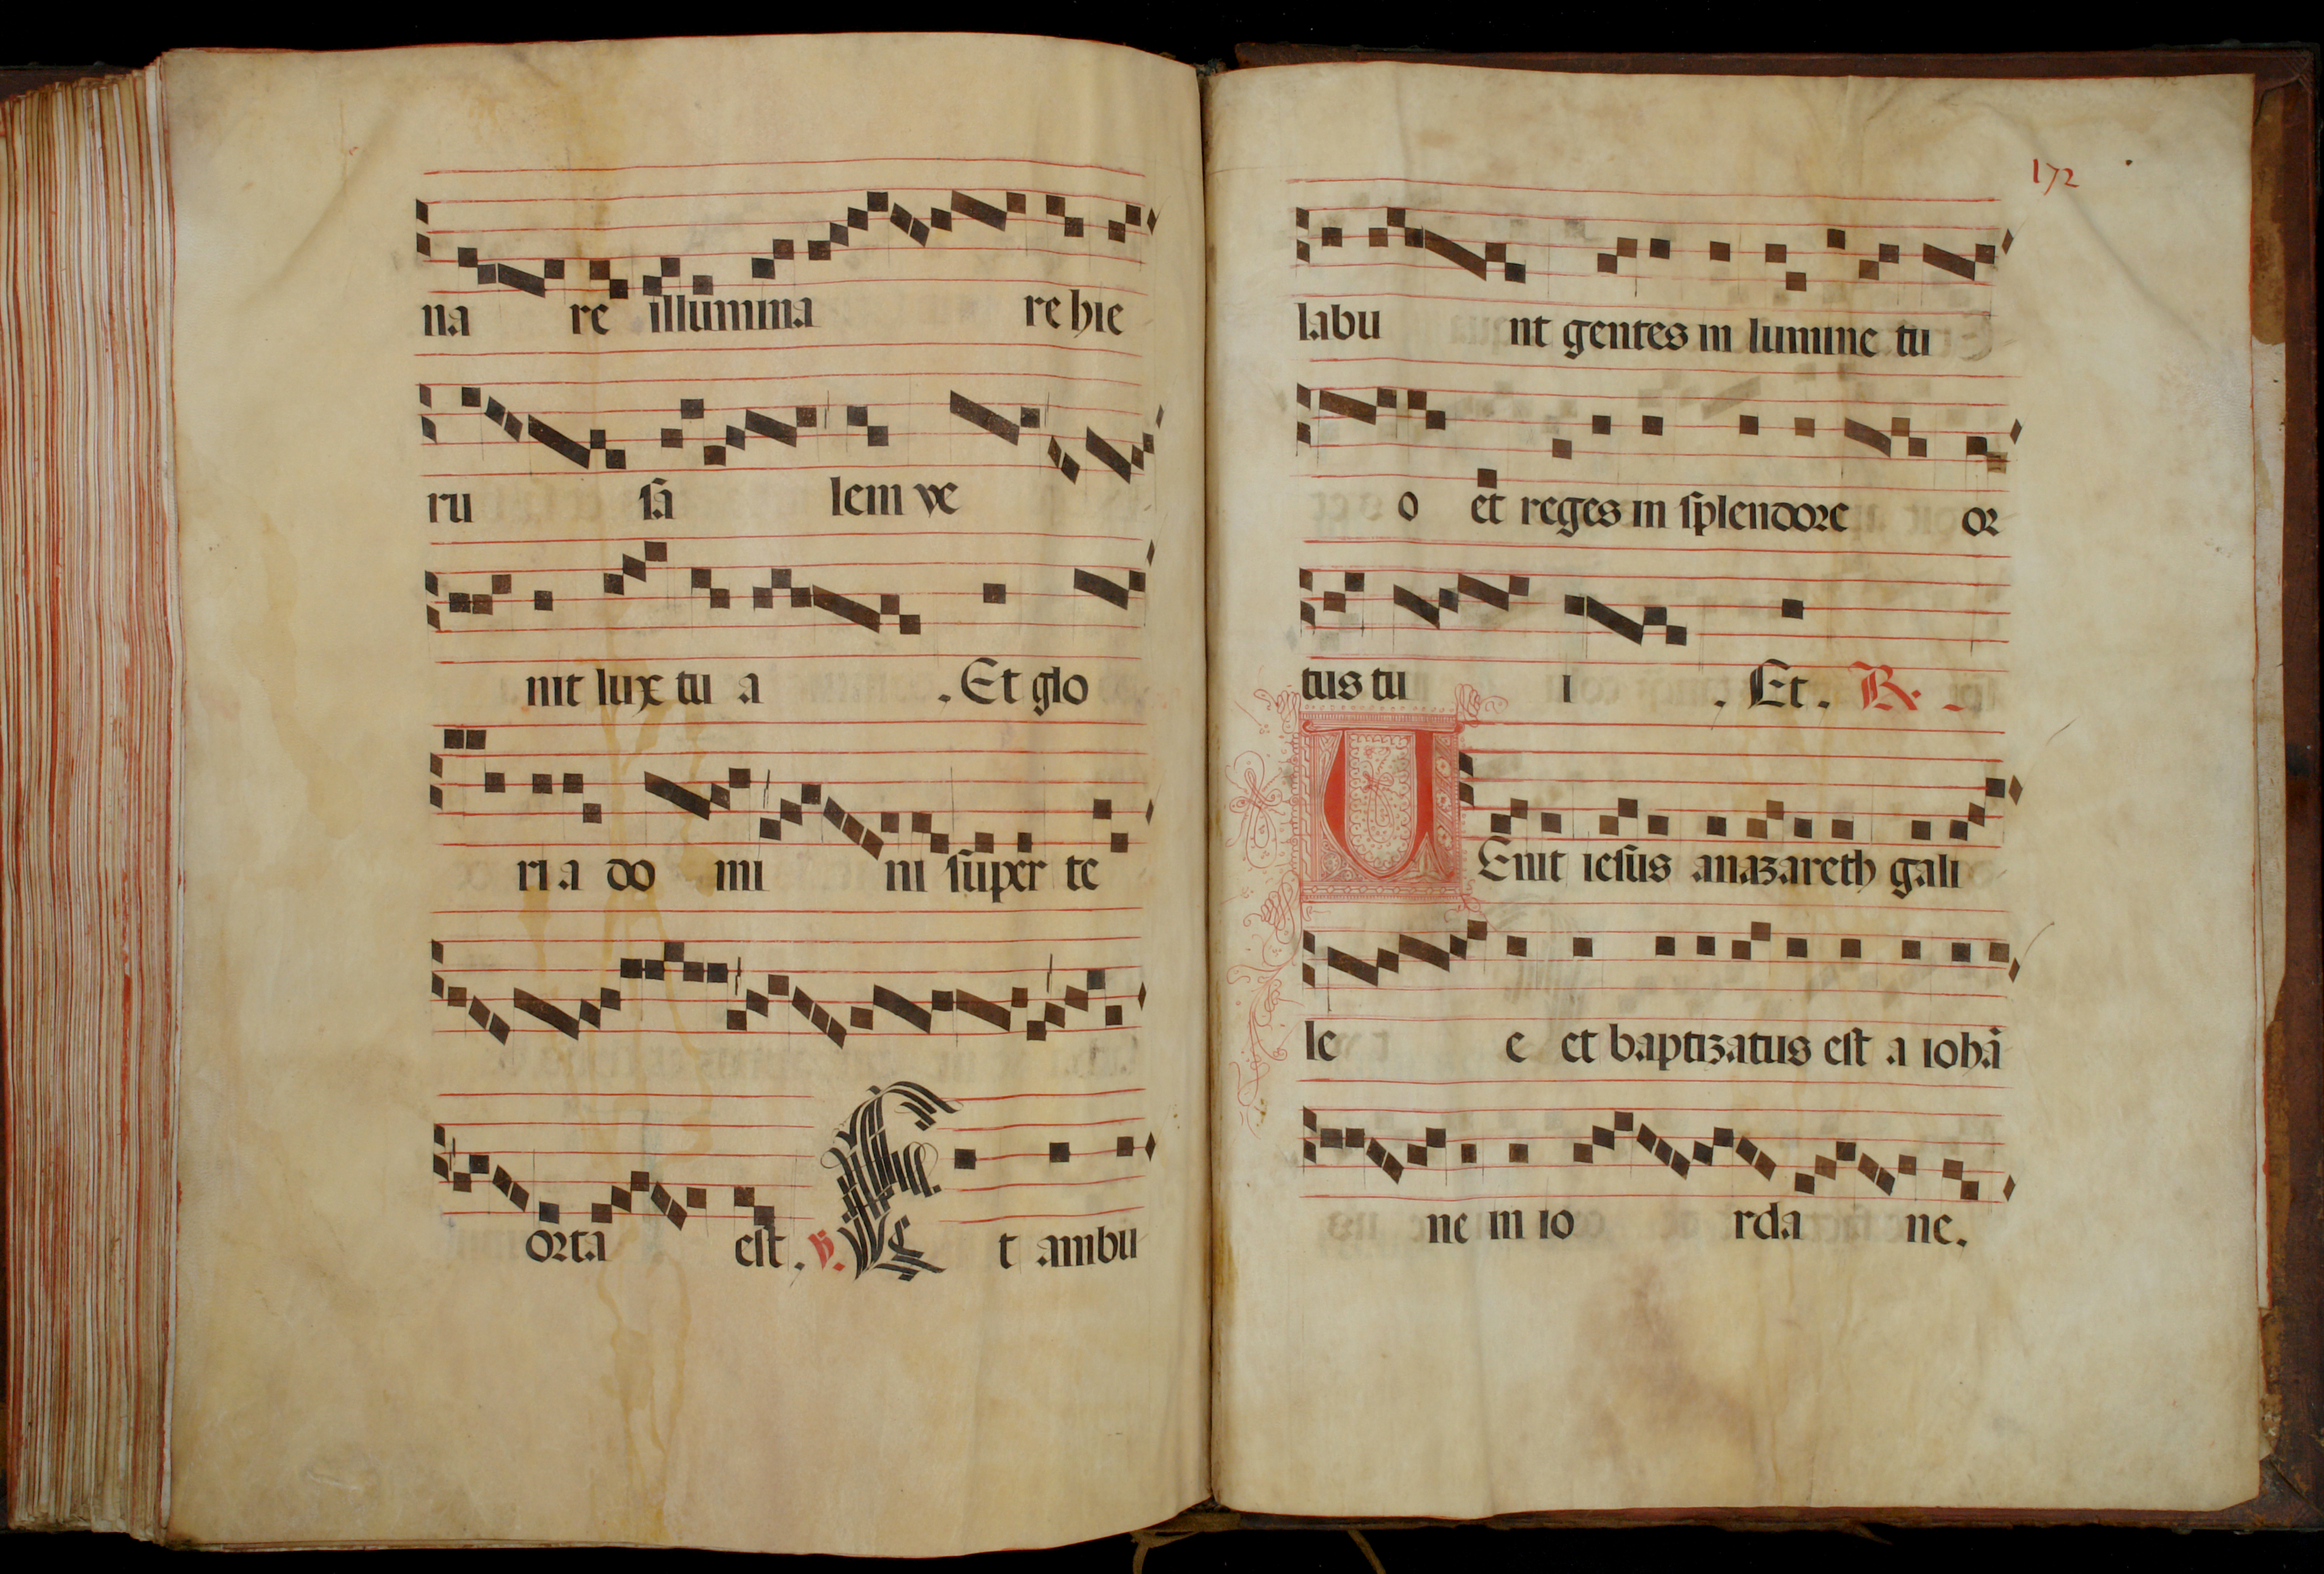 na re illumina re hie
ru sa lem ve
nit lux tu a . Et glo
ri a do mi ni super te
orta est . V. Et ambu
172
labu nt gentes in lumine tu
o et reges in splendore or
tus tu i . Et . R.
UEnit iesus anazareth gali
le e et baptizatus est a iohā
ne in io rda ne.